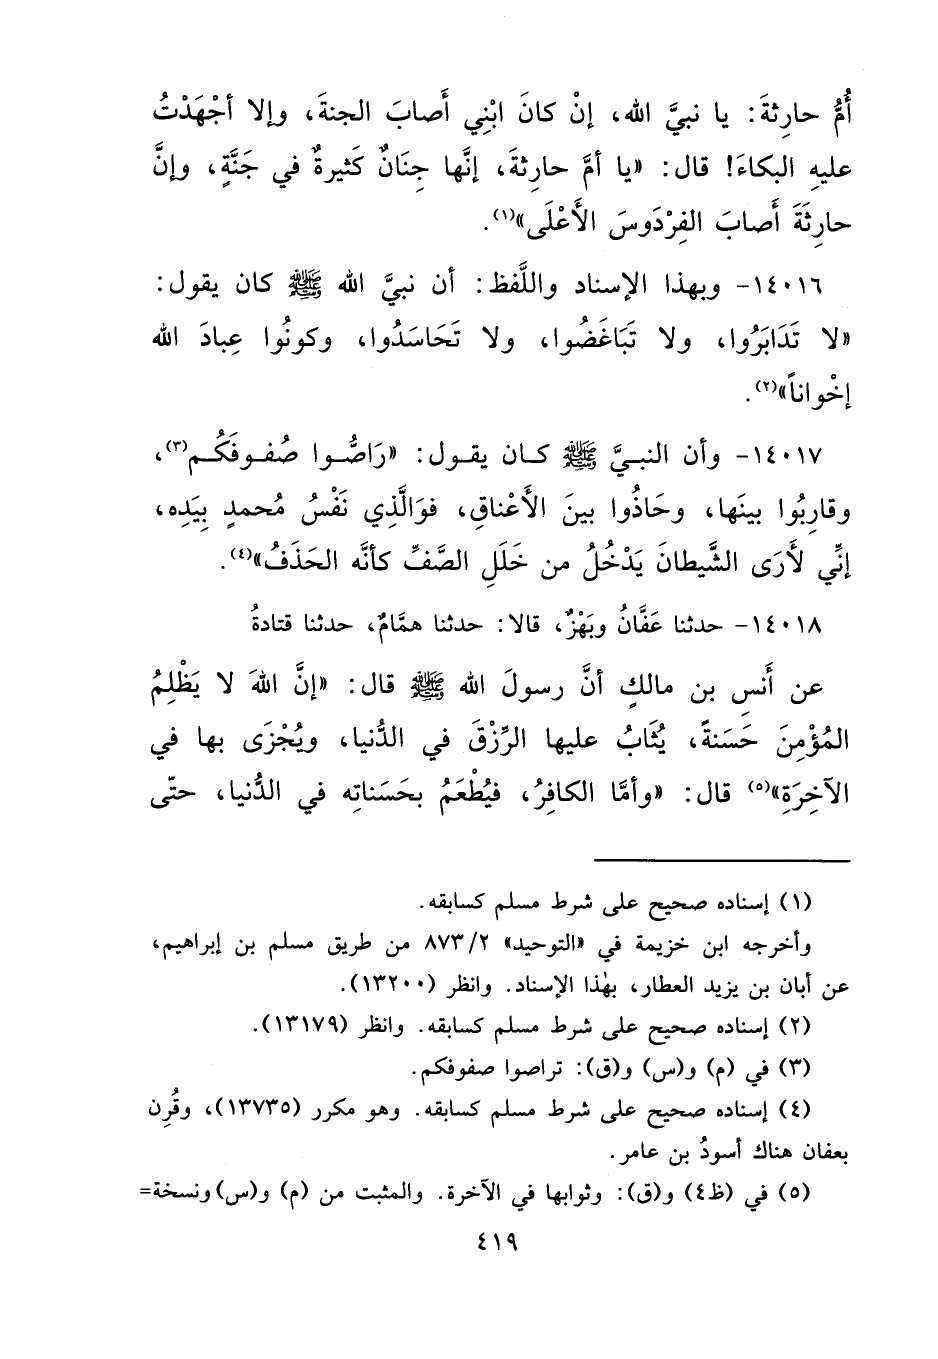 أُمُّ حارِثةَ: يا نبيَّ الله، إنْ كانَ ابْنِي أَصابَ الجنةَ، وإلا أجْهَدْتُ
عليهِ البكاءَ! قال: «يا أمَّ حارِثةَ، إنَّها جِنَانٌ كَثيرةٌ في جَنَّةٍ، وإنَّ
حارِثَةَ أَصابَ الفِرْدَوسَ الأَعْلَى»(١).
١٤٠١٦- وبهذا الإسناد واللَّفظ: أن نبيَّ الله ﷺ كان يقول:
«لا تَدَابَرُوا، ولا تَبَاغَضُوا، ولا تَحَاسَدُوا، وكونُوا عِبادَ الله
إخْواناً»(٢).
١٤٠١٧- وأن النبيَّ ﷺ كان يقول: «رَاصُّوا صُفوفَكُم(٣)،
وقارِبُوا بينَها، وحَاذُوا بينَ الأَعْناقِ، فوَالَّذِي نَفْسُ مُحمدٍ بِيَدِه،
إنِّي لأَرَى الشَّيطانَ يَدْخُلُ من خَلَلِ الصَّفِّ كأنَّه الحَذَفُ»(٤).
١٤٠١٨- حدثنا عَفَّانُ وبَهْزٌ، قالا: حدثنا همَّامٌ، حدثنا قتادةُ
عن أَنسِ بن مالكٍ أنَّ رسولَ الله ﷺ قال: «إنَّ اللهَ لا يَظْلِمُ
المُؤْمِنَ حَسَنةً، يُثَابُ عليها الرِّزْقَ في الدُّنيا، ويُجْزَى بها في
الآخِرَةِ»(٥) قال: «وأمَّا الكافِرُ، فيُطْعَمُ بحَسَناتِه في الدُّنيا، حتّى
(١) إسناده صحيح على شرط مسلم كسابقه.
وأخرجه ابن خزيمة في «التوحيد» ٨٧٣/٢ من طريق مسلم بن إبراهيم،
عن أبان بن يزيد العطار، بهٰذا الإسناد. وانظر (١٣٢٠٠).
(٢) إسناده صحيح على شرط مسلم كسابقه. وانظر (١٣١٧٩).
(٣) في (م) و(س) و(ق): تراصوا صفوفكم.
(٤) إسناده صحيح على شرط مسلم كسابقه. وهو مكرر (١٣٧٣٥)، وقُرِن
بعفان هناك أسودُ بن عامر.
(٥) في (ظ٤) و(ق): وثوابها في الآخرة. والمثبت من (م) و(س) ونسخة=
٤١٩